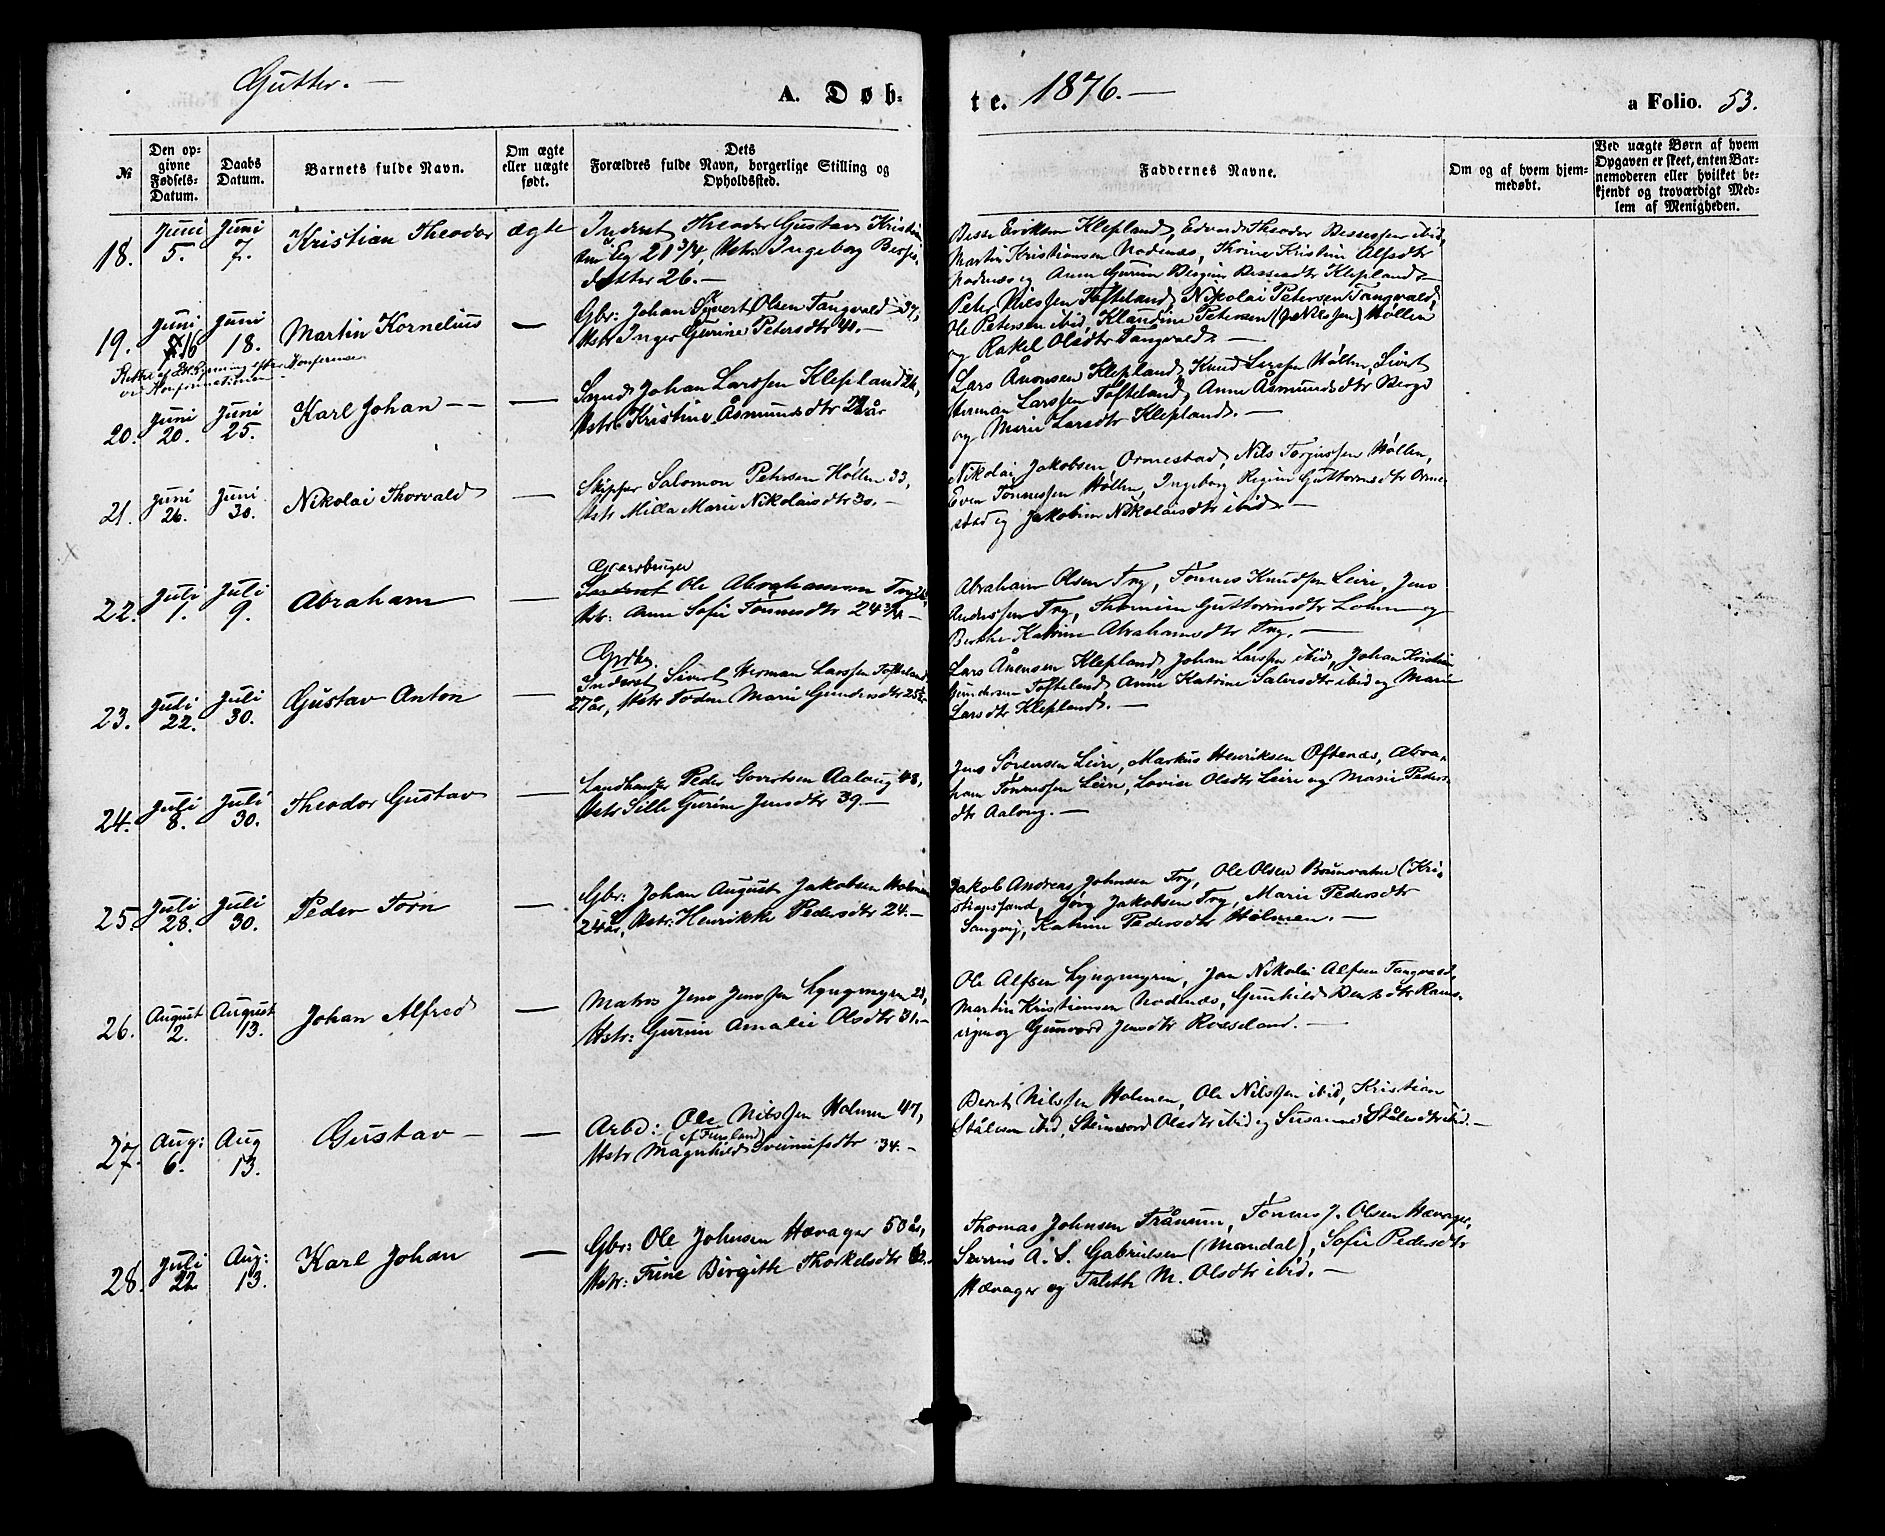 Gutter. —
A. Døb-
te. 1876. —
a Folio. 53.
№
Den op-
givne
Fødsels-
Datum.
Daabs
Datum.
Barnets fulde Navn.
Om ægte
eller uægte
født.
Dets
Forældres fulde Navn, borgerlige Stilling og
Opholdssted.
Faddernes Navne.
Om og af hvem hjem-
medøbt.
Ved uægte Børn af hvem
Opgaven er skeet, enten Bar-
nemoderen eller hvilket be-
kjendt og troværdigt Med-
lem af Menigheden.
18.
Juni
5.
Juni
7.
Kristian Theodor
ægte
Inderst Theodor Gustav
Eg 21 3/4, Hstr. Ingeborg
datter 26. —
Eriksen Klepland, Edvard Theodor ibid,
Martin Kristiansen Nodenes, Kristine Alfsdtr
Nodenes og Anne Gurine Klepland
19.
Juni
16
Juni
18.
Martin Kornelius
—
Gbr: Johan Sivert Olsen Tangvald 37,
Hstr Inger Gurine Petersdtr 40. —
Peter Nilssen Tofteland, Nikolai Petersen Tangvald,
Ole Petersen ibid, Klaudine Petersen Høllen
og Rakel Olsdtr Tangvald. —
20.
Juni
20.
Juni
25.
Karl Johan —
—
Johan Larssen Klepland 26,
Hstr Kristine Åsmundsdtr 27 år
Lars Ånonsen Klepland, Knud Larssen Høllen, Sivert
Herman Larssen Tofteland, Anne Åsmundsdtr Berge
og Marie Larsdtr Klepland. —
21.
Juni
26.
Juni
30.
Nikolai Thorvald
—
Skipper Salomon Petersen Høllen 33,
Hstr Milla Marie Nikolaisdtr 30. —
Nikolai Jakobsen Ormestad, Nils Torjussen Høllen,
Even Tønnessen Høllen, Ingeborg Regine Guttormsdtr Orme-
stad og Jakobine Nikolaisdtr ibid. —
22.
Juli
1.
Juli
9.
Abraham
—
Gaardbruger
Inderst Ole Abrahamsen Try
Hstr: Anne Sofie Tønnesdtr 24
Abraham Olsen Try, Tønnes Knudsen Leire, Jens
Andreassen Try, Guttormsdtr og
Berthe Katrine Abrahamsdtr Try. —
23.
Juli
22.
Juli
30.
Gustav Anton
—
Grdbg.
Inderst Sivert Herman Larssen Tofteland
27 år, Hstr Marie Gundersdtr 25
Lars Ånensen Klepland, Johan Larssen ibid, Johan Kristian
Gundersen Tofteland, Anne Katrine ibid og Marie
Larsdtr Klepland. —
24.
Juli
8.
Juli
30.
Theodor Gustav
—
Peder Govertsen Aaloug 48,
Hstr Sille Gurine Jensdtr 39. —
Jens Sørensen Leire, Markus Henriksen Oftenæs, Abra-
ham Tønnessen Leire, Lovise Olsdtr Leire og Marie Peders-
dtr Aaloug. —
25.
Juli
28.
Juli
30.
Peder Torn
—
Gbr: Johan August Jakobsen Holmen
24 år, Hstr: Henrikke Pedersdtr 24. —
Jakob Andreas Johnsen Try, Ole Olsen (Kri-
stianssand, Jørg Jakobsen Try, Marie Pedersdtr
Katrine Pedersdtr Holmen. —
26.
August
2.
August
13.
Johan Alfred
—
Matros Jens Jenssen Lyngmyren
Hstr: Gurine Amalie Olsdtr 31. —
Ole Alfsen Lyngmyren, Jan Nikolai Alfsen Tangvald,
Martin Kristiansen Nodenæs, Gunhild
og Gunvord Jensdtr Rosseland. —
27.
Aug:
6.
Aug
13.
Gustav —
—
Arbd: Ole Nilssen Holmen 47,
Hstr Magnhild 34. —
Berent Nilssen Holmen, Ole Nilssen ibid, Kristian
Stålesen ibid, Olsdtr ibid og Susanne Ståles dtr ibid. —
28.
Juli
22.
Aug:
13.
Karl Johan
—
Gbr: Ole Johnsen Hævager 50 år,
Hstr: Trine Birgithe Thorkelsdtr
Thomas Johnsen Trånum, Tønnes J. Olsen Hævager,
A. S. Gabrielsen (Mandal), Sofie Pedersdtr
Hævager og M. Olsdtr ibid. —